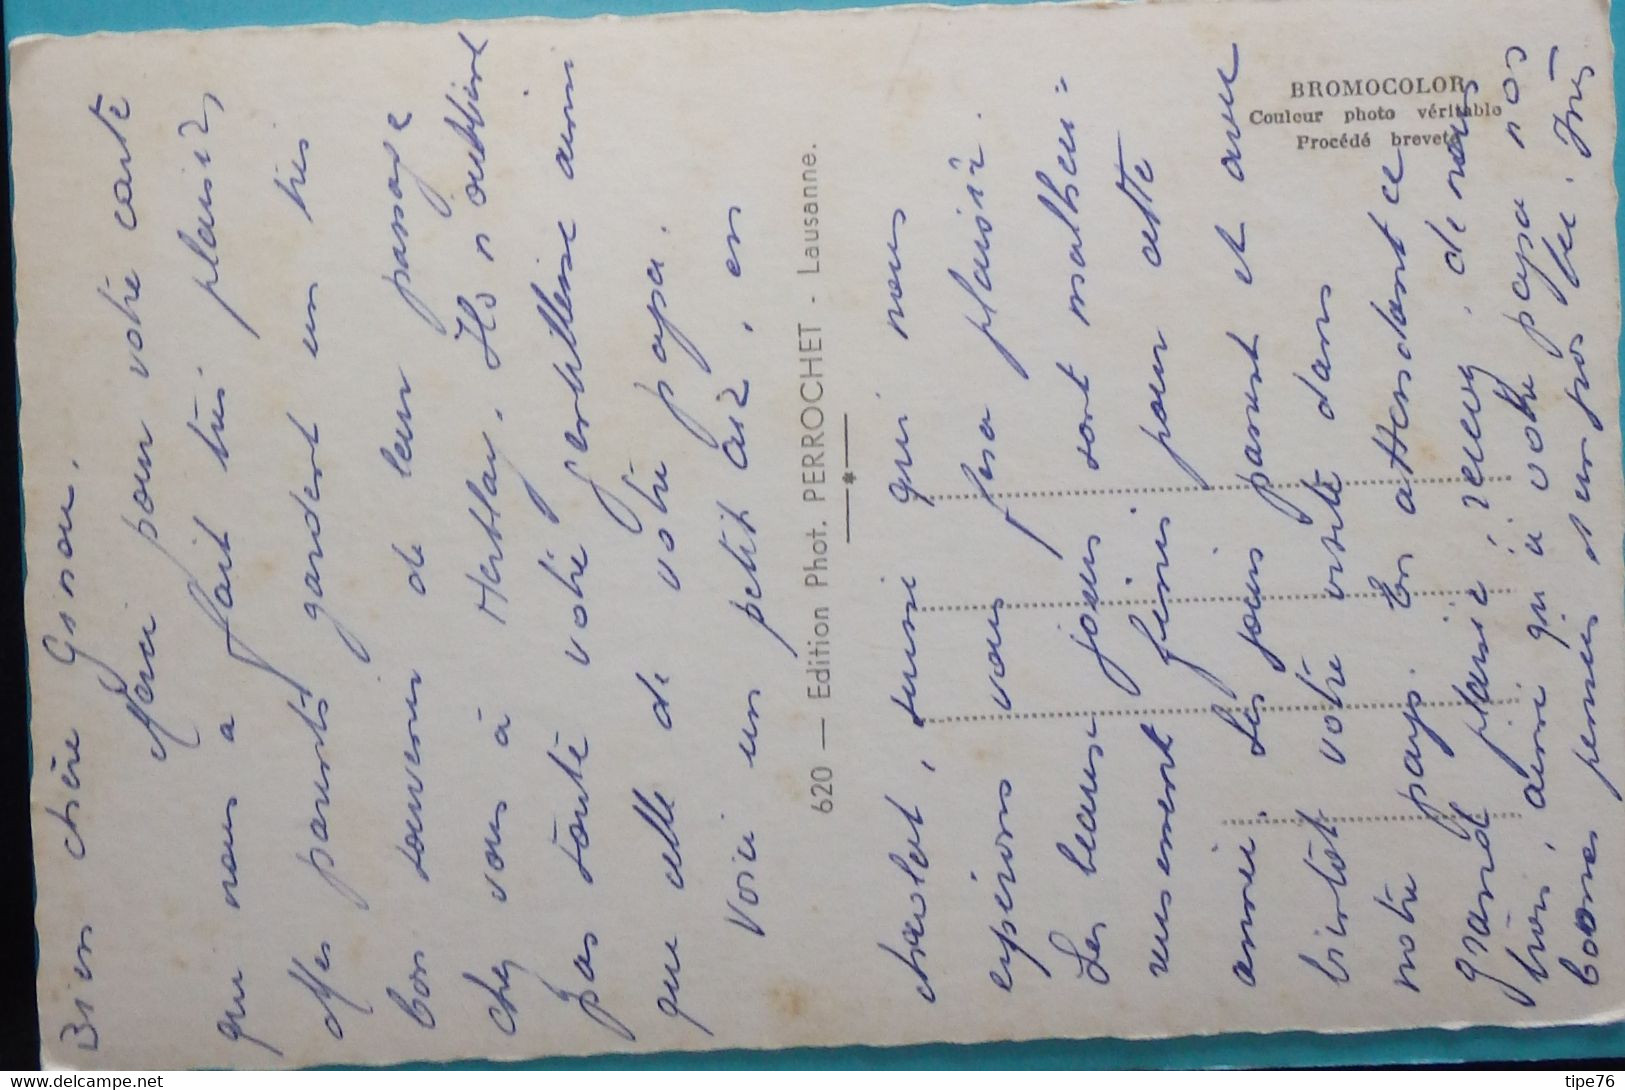 Bien chère Ginou.
Merci pour votre carte
qui nous a fait très plaisir,
Mes parents gardent un très
bon souvenir de leur passage
chez vous à Herblay. Ils n'oublient
pas toute votre gentillesse ainsi
que celle de votre papa.
Voici un petit air, en
620 — Edition Phot. PERROCHET - Lausanne.
*
chocolat, suisse qui nous
esperons vous fera plaisir.
Les beaux jours sont malheu=
reusement finis pour cette
année. Les jours passent et avec
bientôt votre visite dans
notre pays. En attendant ce
grand plaisir recevez, de nous
trois, ainsi qu'à votre papa nos
bonnes pensées
BROMOCOLOR
Couleur photo véritable
Procédé breveté
tipe76